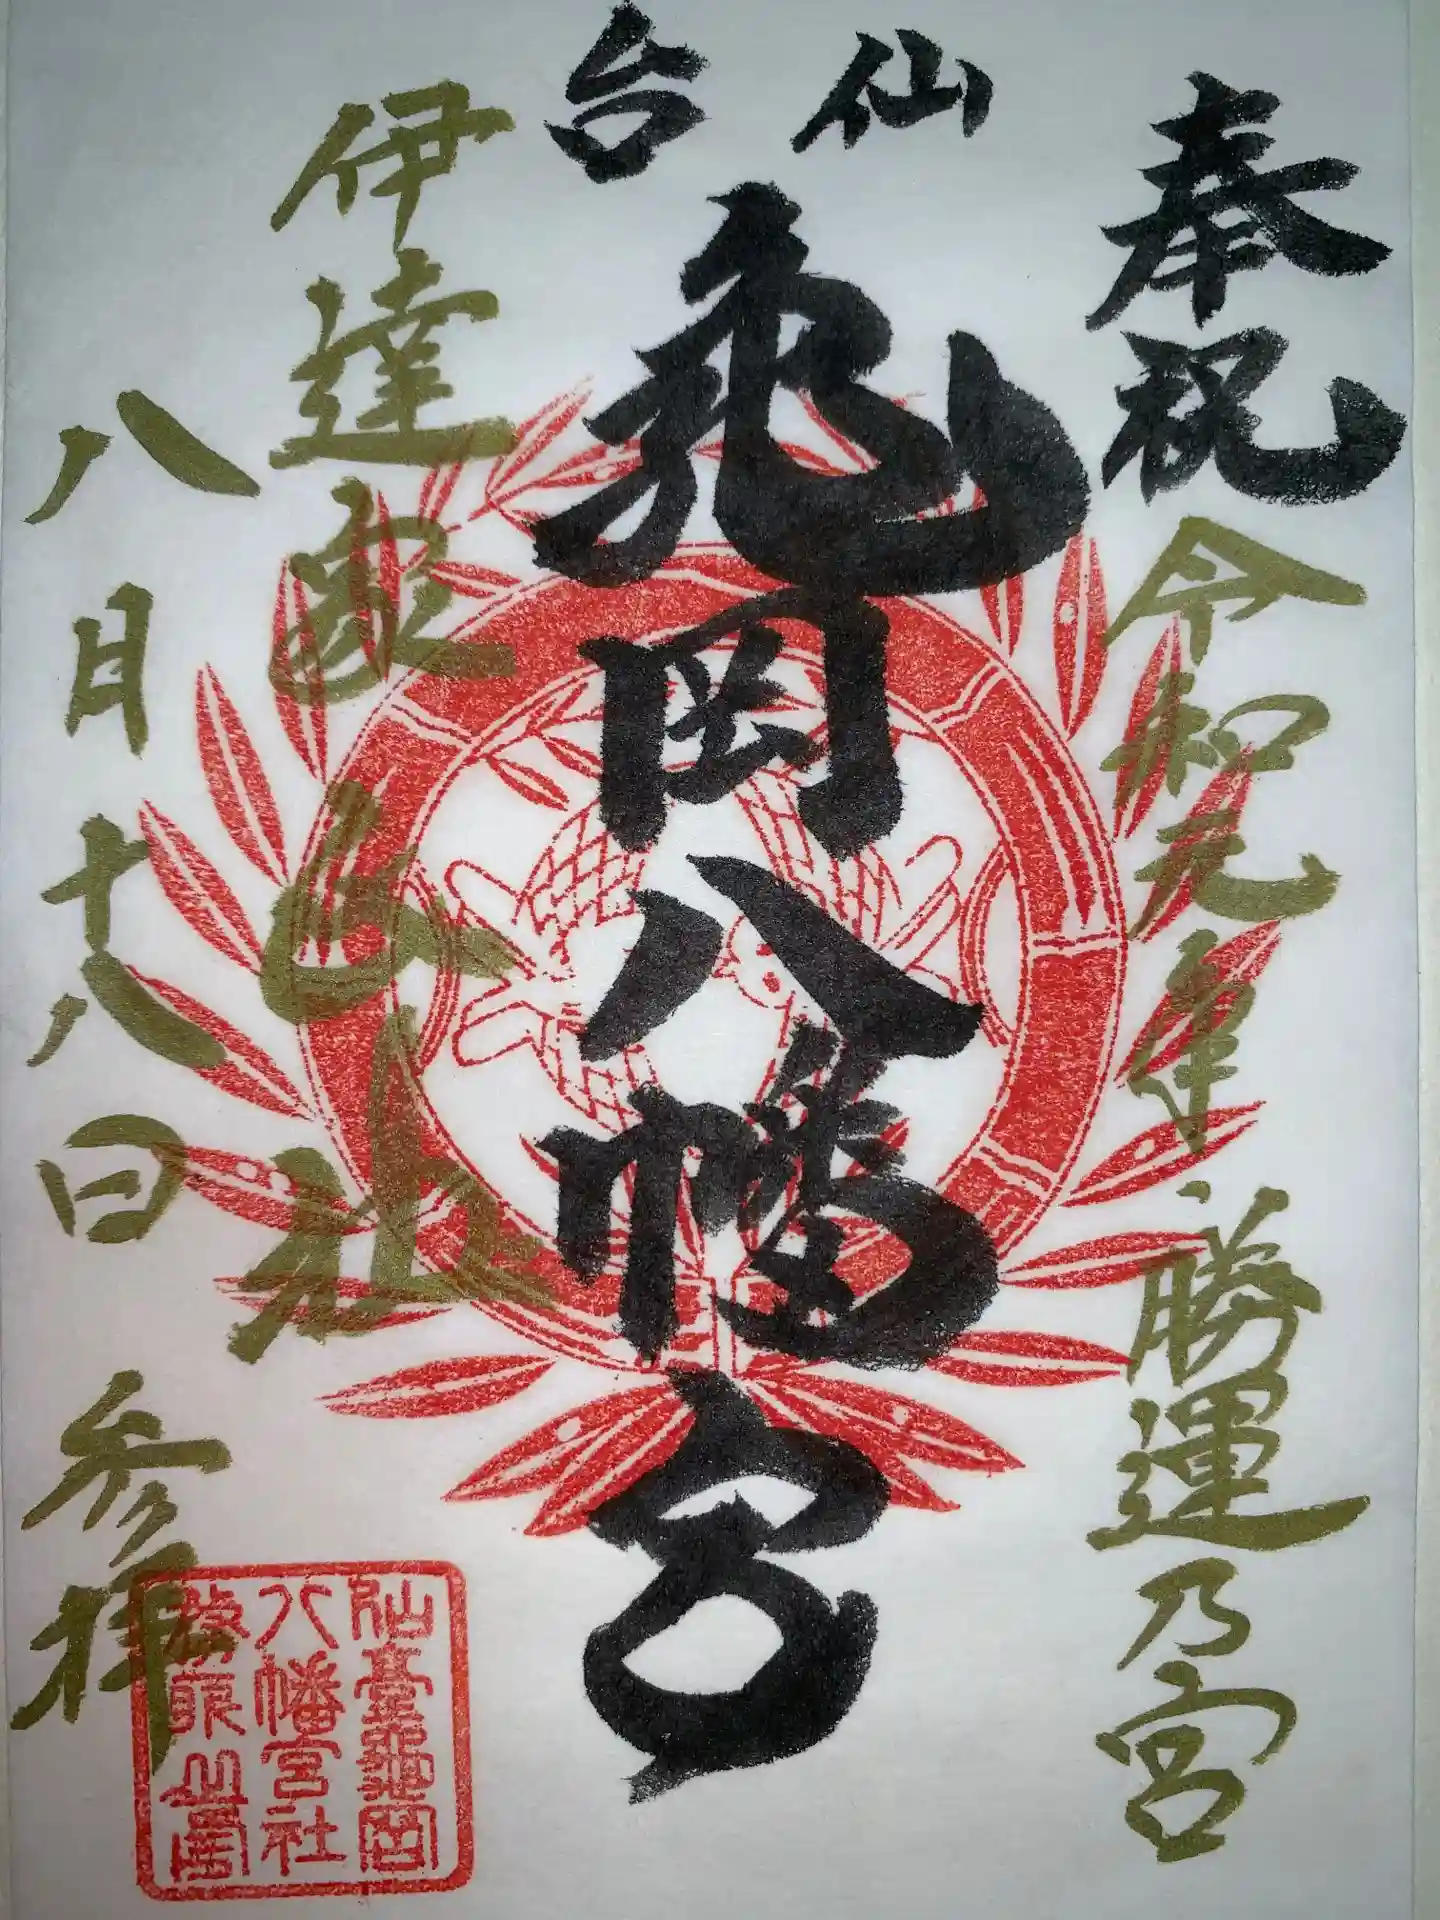 奉祝
令和元年
勝運乃宮
仙台
亀岡八幡宮
伊達家氏社
八月十八日
参拝
仙臺龜岡
八幡宮社